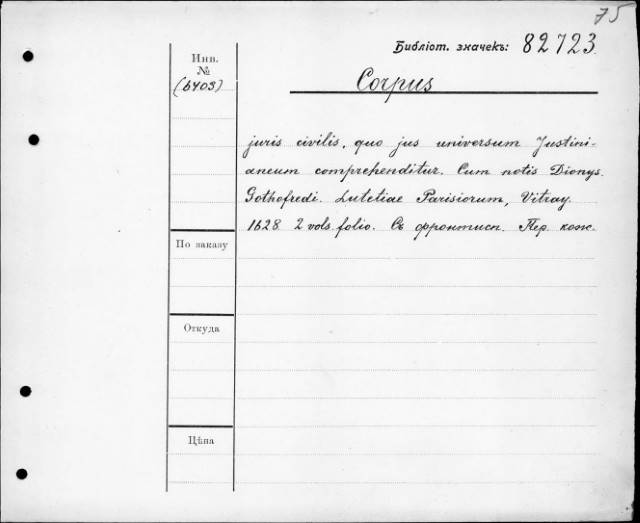 75
Библіот. значекъ: 82723
Инв.
№
(6403)
Corpus
juris civilis, quo jus universum Justini-
aneum comprehenditur. Cum notis Dionys.
Gothofredi. Lutetiae Parisiorum, Vitray
1628 2 vols. folio. Съ фронтисп. Пер. кож.
По заказу
Откуда
Цѣна